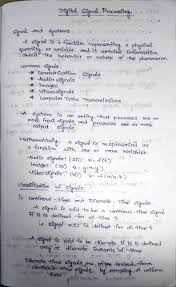 Digital Signal Processing
Signal and Systems
A signal is a function representing a physical
quantity or variable, and it contains information
about the behavior or nature of the phenomenon
common signals
* Communication signals
* Audio signals
* Images
* Video signals
* Computer Data Transmissions
A system is an entity that processes one or
more input signals and produces one or more
output signals
Mathematically: A signal is represented as
a function with one or more variables.
Audio signals: (1D) x = f(t)
Images: (2D)
Video signals: (3D)
Classification of signals:
is continuous-time and Discrete-time signals
A signal is said to be a continuous time signal
if it is defined for all time t
ie signal x(t) is defined for all time t
A signal is said to be discrete if it is defined
only at discrete instants of time
Discrete time signals are often derived from
continuous time signals by sampling at uniform
rate